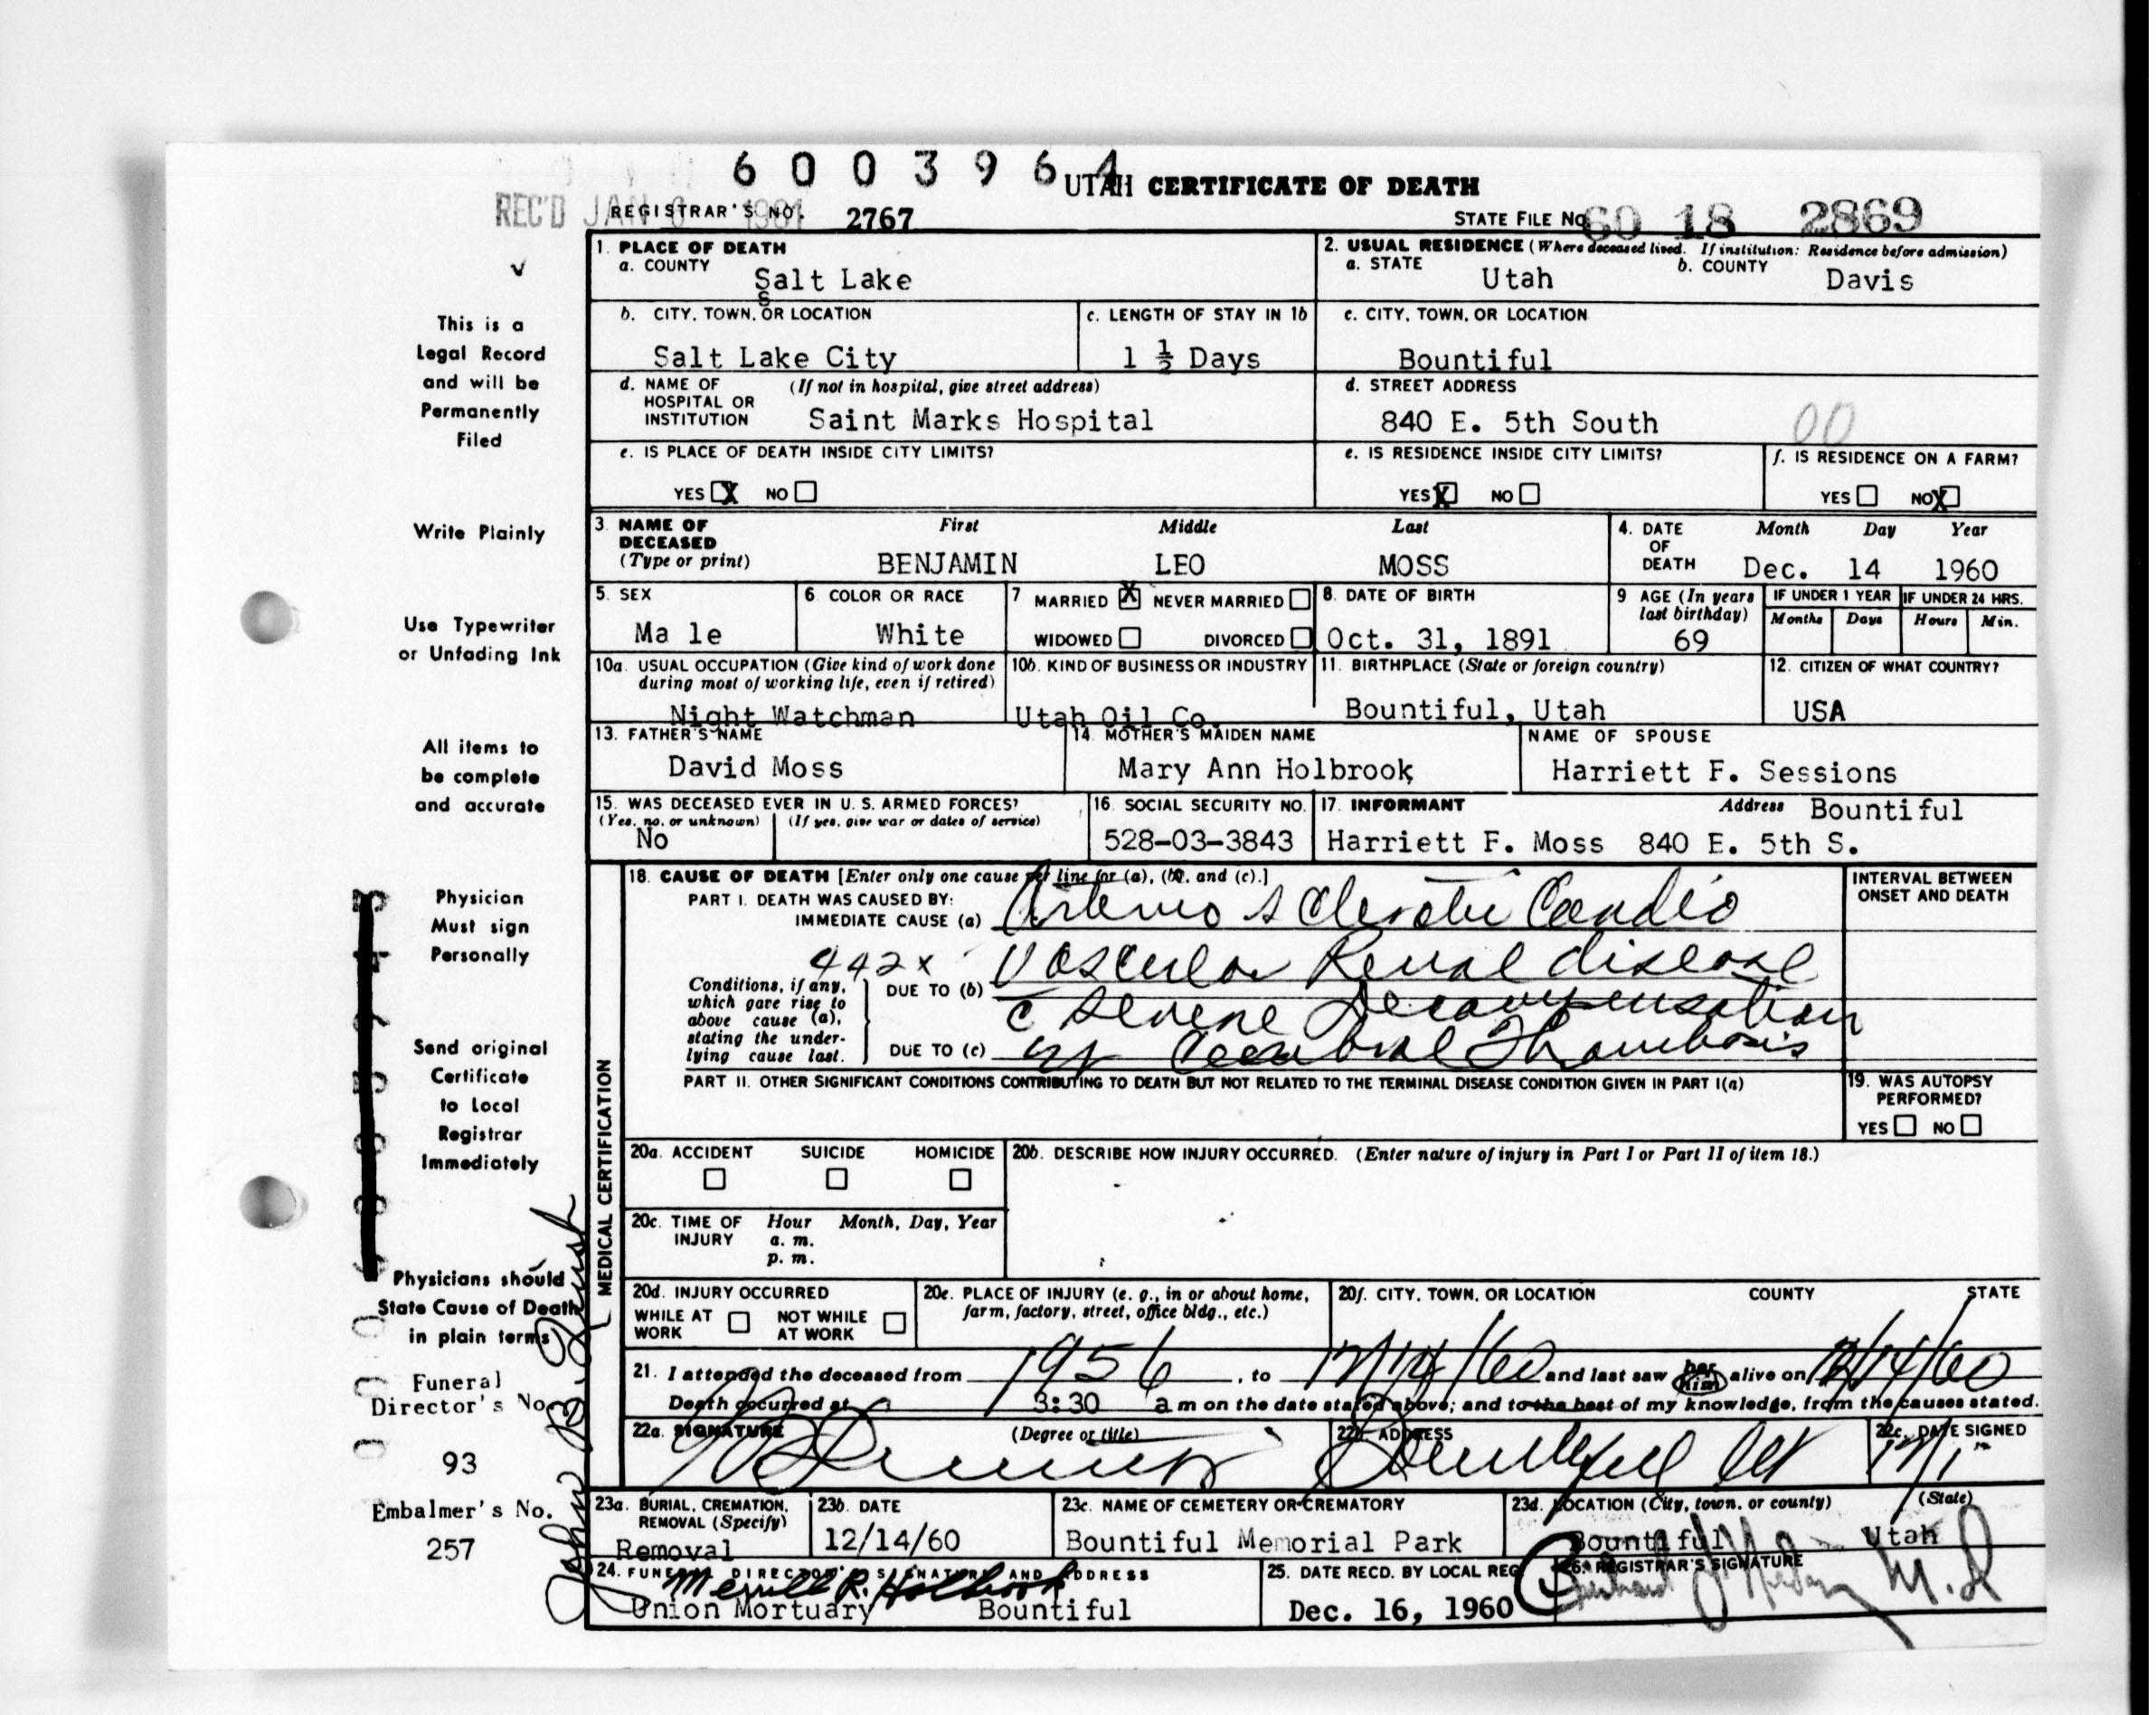 6003964
UTAH CERTIFICATE OF DEATH
REC'D JAN 6 1961 REGISTRAR'S NO. 2767
STATE FILE NO. 60 18 2869
1. PLACE OF DEATH
a. COUNTY
Salt Lake
2. USUAL RESIDENCE (Where deceased lived. If institution: Residence before admission)
a. STATE Utah b. COUNTY Davis
b. CITY, TOWN, OR LOCATION
Salt Lake City
c. LENGTH OF STAY IN 1b
1 ½ Days
c. CITY, TOWN, OR LOCATION
Bountiful
d. NAME OF HOSPITAL OR INSTITUTION (If not in hospital, give street address)
Saint Marks Hospital
d. STREET ADDRESS
840 E. 5th South
00
e. IS PLACE OF DEATH INSIDE CITY LIMITS?
YES X NO
e. IS RESIDENCE INSIDE CITY LIMITS?
YES X NO
f. IS RESIDENCE ON A FARM?
YES NO X
3. NAME OF DECEASED (Type or print)
First Middle Last
BENJAMIN LEO MOSS
4. DATE OF DEATH
Month Day Year
Dec. 14 1960
5. SEX
Ma le
6. COLOR OR RACE
White
7 MARRIED X NEVER MARRIED
WIDOWED DIVORCED
8. DATE OF BIRTH
Oct. 31, 1891
9 AGE (In years last birthday)
69
IF UNDER 1 YEAR
Months Days
IF UNDER 24 HRS.
Hours Min.
10a. USUAL OCCUPATION (Give kind of work done during most of working life, even if retired)
Night Watchman
10b. KIND OF BUSINESS OR INDUSTRY
Utah Oil Co.
11. BIRTHPLACE (State or foreign country)
Bountiful, Utah
12. CITIZEN OF WHAT COUNTRY?
USA
13. FATHER'S NAME
David Moss
14. MOTHER'S MAIDEN NAME
Mary Ann Holbrook
NAME OF SPOUSE
Harriett F. Sessions
15. WAS DECEASED EVER IN U. S. ARMED FORCES?
(Yes, no, or unknown) (If yes, give war or dates of service)
No
16. SOCIAL SECURITY NO.
528-03-3843
17. INFORMANT Address Bountiful
Harriett F. Moss 840 E. 5th S.
MEDICAL CERTIFICATION
18. CAUSE OF DEATH [Enter only one cause per line for (a), (b), and (c).]
PART I. DEATH WAS CAUSED BY:
IMMEDIATE CAUSE (a) Arterio sclerotic Cardio
442x Vascular Renal disease
Conditions, if any, which gave rise to above cause (a), stating the underlying cause last.
DUE TO (b)
c severe Decompensation
DUE TO (c) Cerebral Thrombosis
INTERVAL BETWEEN ONSET AND DEATH
PART II. OTHER SIGNIFICANT CONDITIONS CONTRIBUTING TO DEATH BUT NOT RELATED TO THE TERMINAL DISEASE CONDITION GIVEN IN PART I(a)
19. WAS AUTOPSY PERFORMED?
YES NO
20a. ACCIDENT SUICIDE HOMICIDE
20b. DESCRIBE HOW INJURY OCCURRED. (Enter nature of injury in Part I or Part II of item 18.)
20c. TIME OF INJURY Hour Month, Day, Year
a. m.
p. m.
20d. INJURY OCCURRED
WHILE AT WORK NOT WHILE AT WORK
20e. PLACE OF INJURY (e. g., in or about home, farm, factory, street, office bldg., etc.)
20f. CITY, TOWN, OR LOCATION COUNTY STATE
21. I attended the deceased from 1956, to 12/14/60 and last saw her him alive on 12/14/60
Death occurred at 3:30 a m on the date stated above; and to the best of my knowledge, from the causes stated.
22a. SIGNATURE (Degree or title)
22b. ADDRESS
Bountiful Ut
22c. DATE SIGNED
23a. BURIAL, CREMATION, REMOVAL (Specify)
Removal
23b. DATE
12/14/60
23c. NAME OF CEMETERY OR CREMATORY
Bountiful Memorial Park
23d. LOCATION (City, town, or county) (State)
Bountiful Utah
24. FUNERAL DIRECTOR'S SIGNATURE AND ADDRESS
Merrill R. Holbrook
Union Mortuary Bountiful
25. DATE RECD. BY LOCAL REG.
Dec. 16, 1960
26. REGISTRAR'S SIGNATURE
M.D
This is a
Legal Record
and will be
Permanently
Filed
Write Plainly
Use Typewriter
or Unfading Ink
All items to
be complete
and accurate
Physician
Must sign
Personally
Send original
Certificate
to Local
Registrar
Immediately
Physicians should
State Cause of Death
in plain terms
Funeral
Director's No.
93
Embalmer's No.
257
John B.